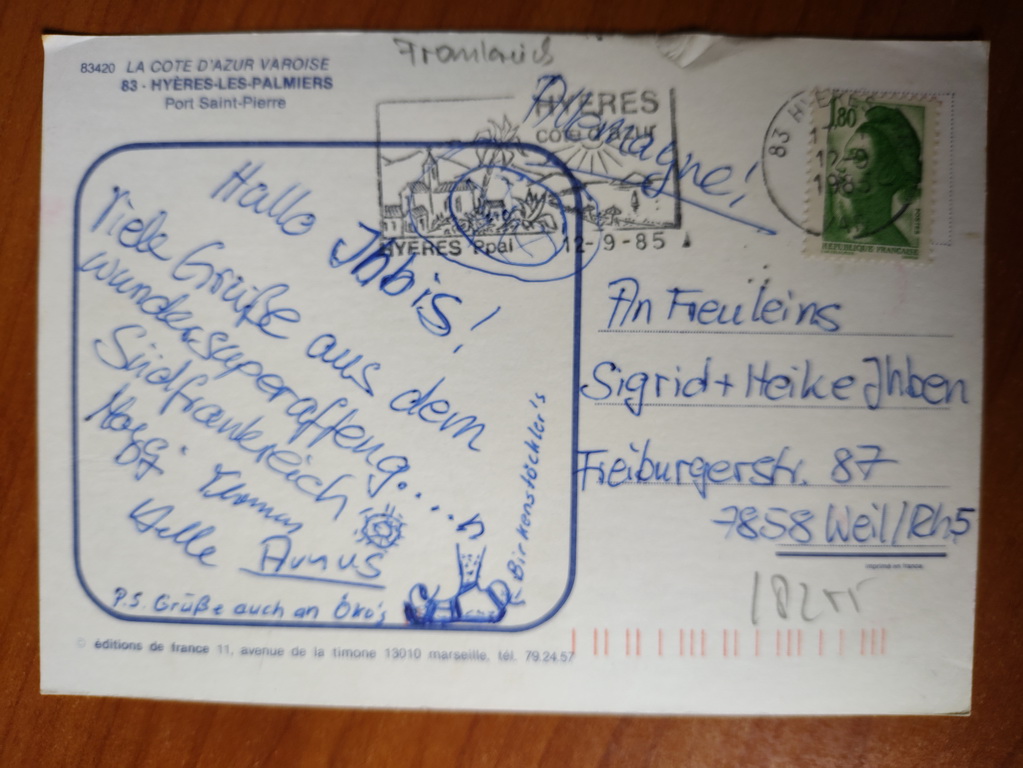 Frankreich
83420 LA COTE D'AZUR VAROISE
83 - HYÈRES-LES-PALMIERS
Port Saint-Pierre
HYERES
côte d'azur
HYERES Ppal 12-9-85
Allemagne!
83 HYERES
12-9
1985
1,80
REPUBLIQUE FRANÇAISE
Hallo Ihbis!
Viele Grüße aus dem
wundersuperaffeng....n
Südfrankreich
Helle
P.S. Grüße auch an Öko's
Birkenstöckler's
An Freuleins
Sigrid + Heike Ihben
Freiburgerstr. 87
7858 Weil/Rh5
imprimé en france
© éditions de france 11, avenue de la timone 13010 marseille, tél. 79.24.57